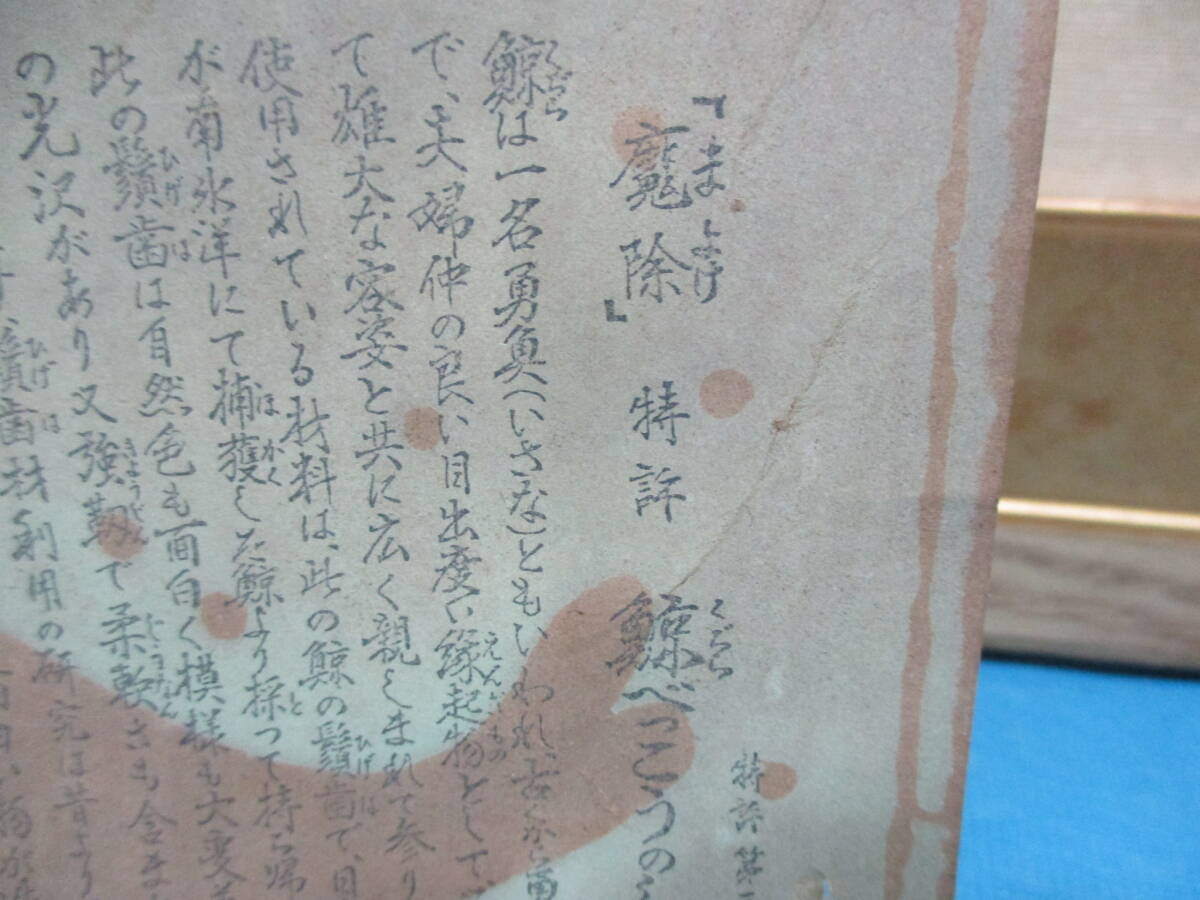 「魔除」 特許 鯨べっこうの
まよけ
くじら
特許第
鯨は一名勇魚(いさな)ともいわれ、古から
くぢら
で、夫婦仲の良い目出度い縁起物として
えんぎもの
て雄大な容姿と共に広く親しまれて参り
使用されている材料は、此の鯨の鬚歯で、
ひげは
が南氷洋にて捕獲した鯨より採って持ち帰
ほかく
と
此の鬚歯は自然色も面白く模様も大変
ひげは
の光沢があり又強靱で柔軟さも含
きようじん
鬚歯材利用の研究は昔より
ひげは